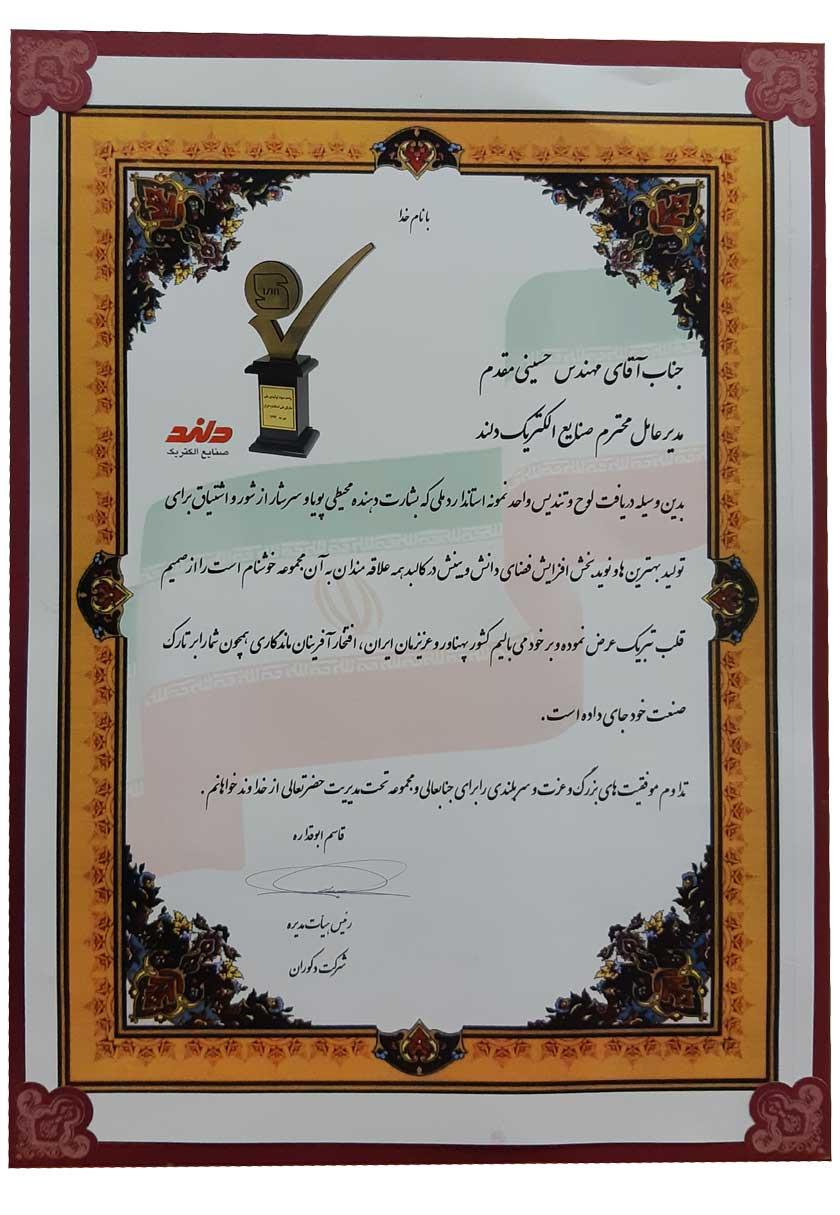 با نام خدا
ISIRI
دلند
صنایع الکتریک
جناب آقای مهندس حسینی مقدم
مدیر عامل محترم صنایع الکتریک دلند
بدین وسیله دریافت لوح و تندیس واحد نمونه استاندارد ملی که بشارت دهنده محیطی پویا و سرشار از شور و اشتیاق برای
تولید بهترین ها و نوید بخش افزایش فضای دانش و بینش در کالبد همه علاقه مندان به آن مجموعه خوشنام است را از صمیم
قلب تبریک عرض نموده و بر خود می بالیم کشور پهناور و عزیزمان ایران، افتخار آفرینان ماندگاری همچون شما را بر تارک
صنعت خود جای داده است.
تداوم موفقیت های بزرگ و عزت و سربلندی را برای جنابعالی و مجموعه تحت مدیریت حضرتعالی از خداوند خواهانم.
قاسم ابوقداره
رئیس هیأت مدیره
شرکت دکوران